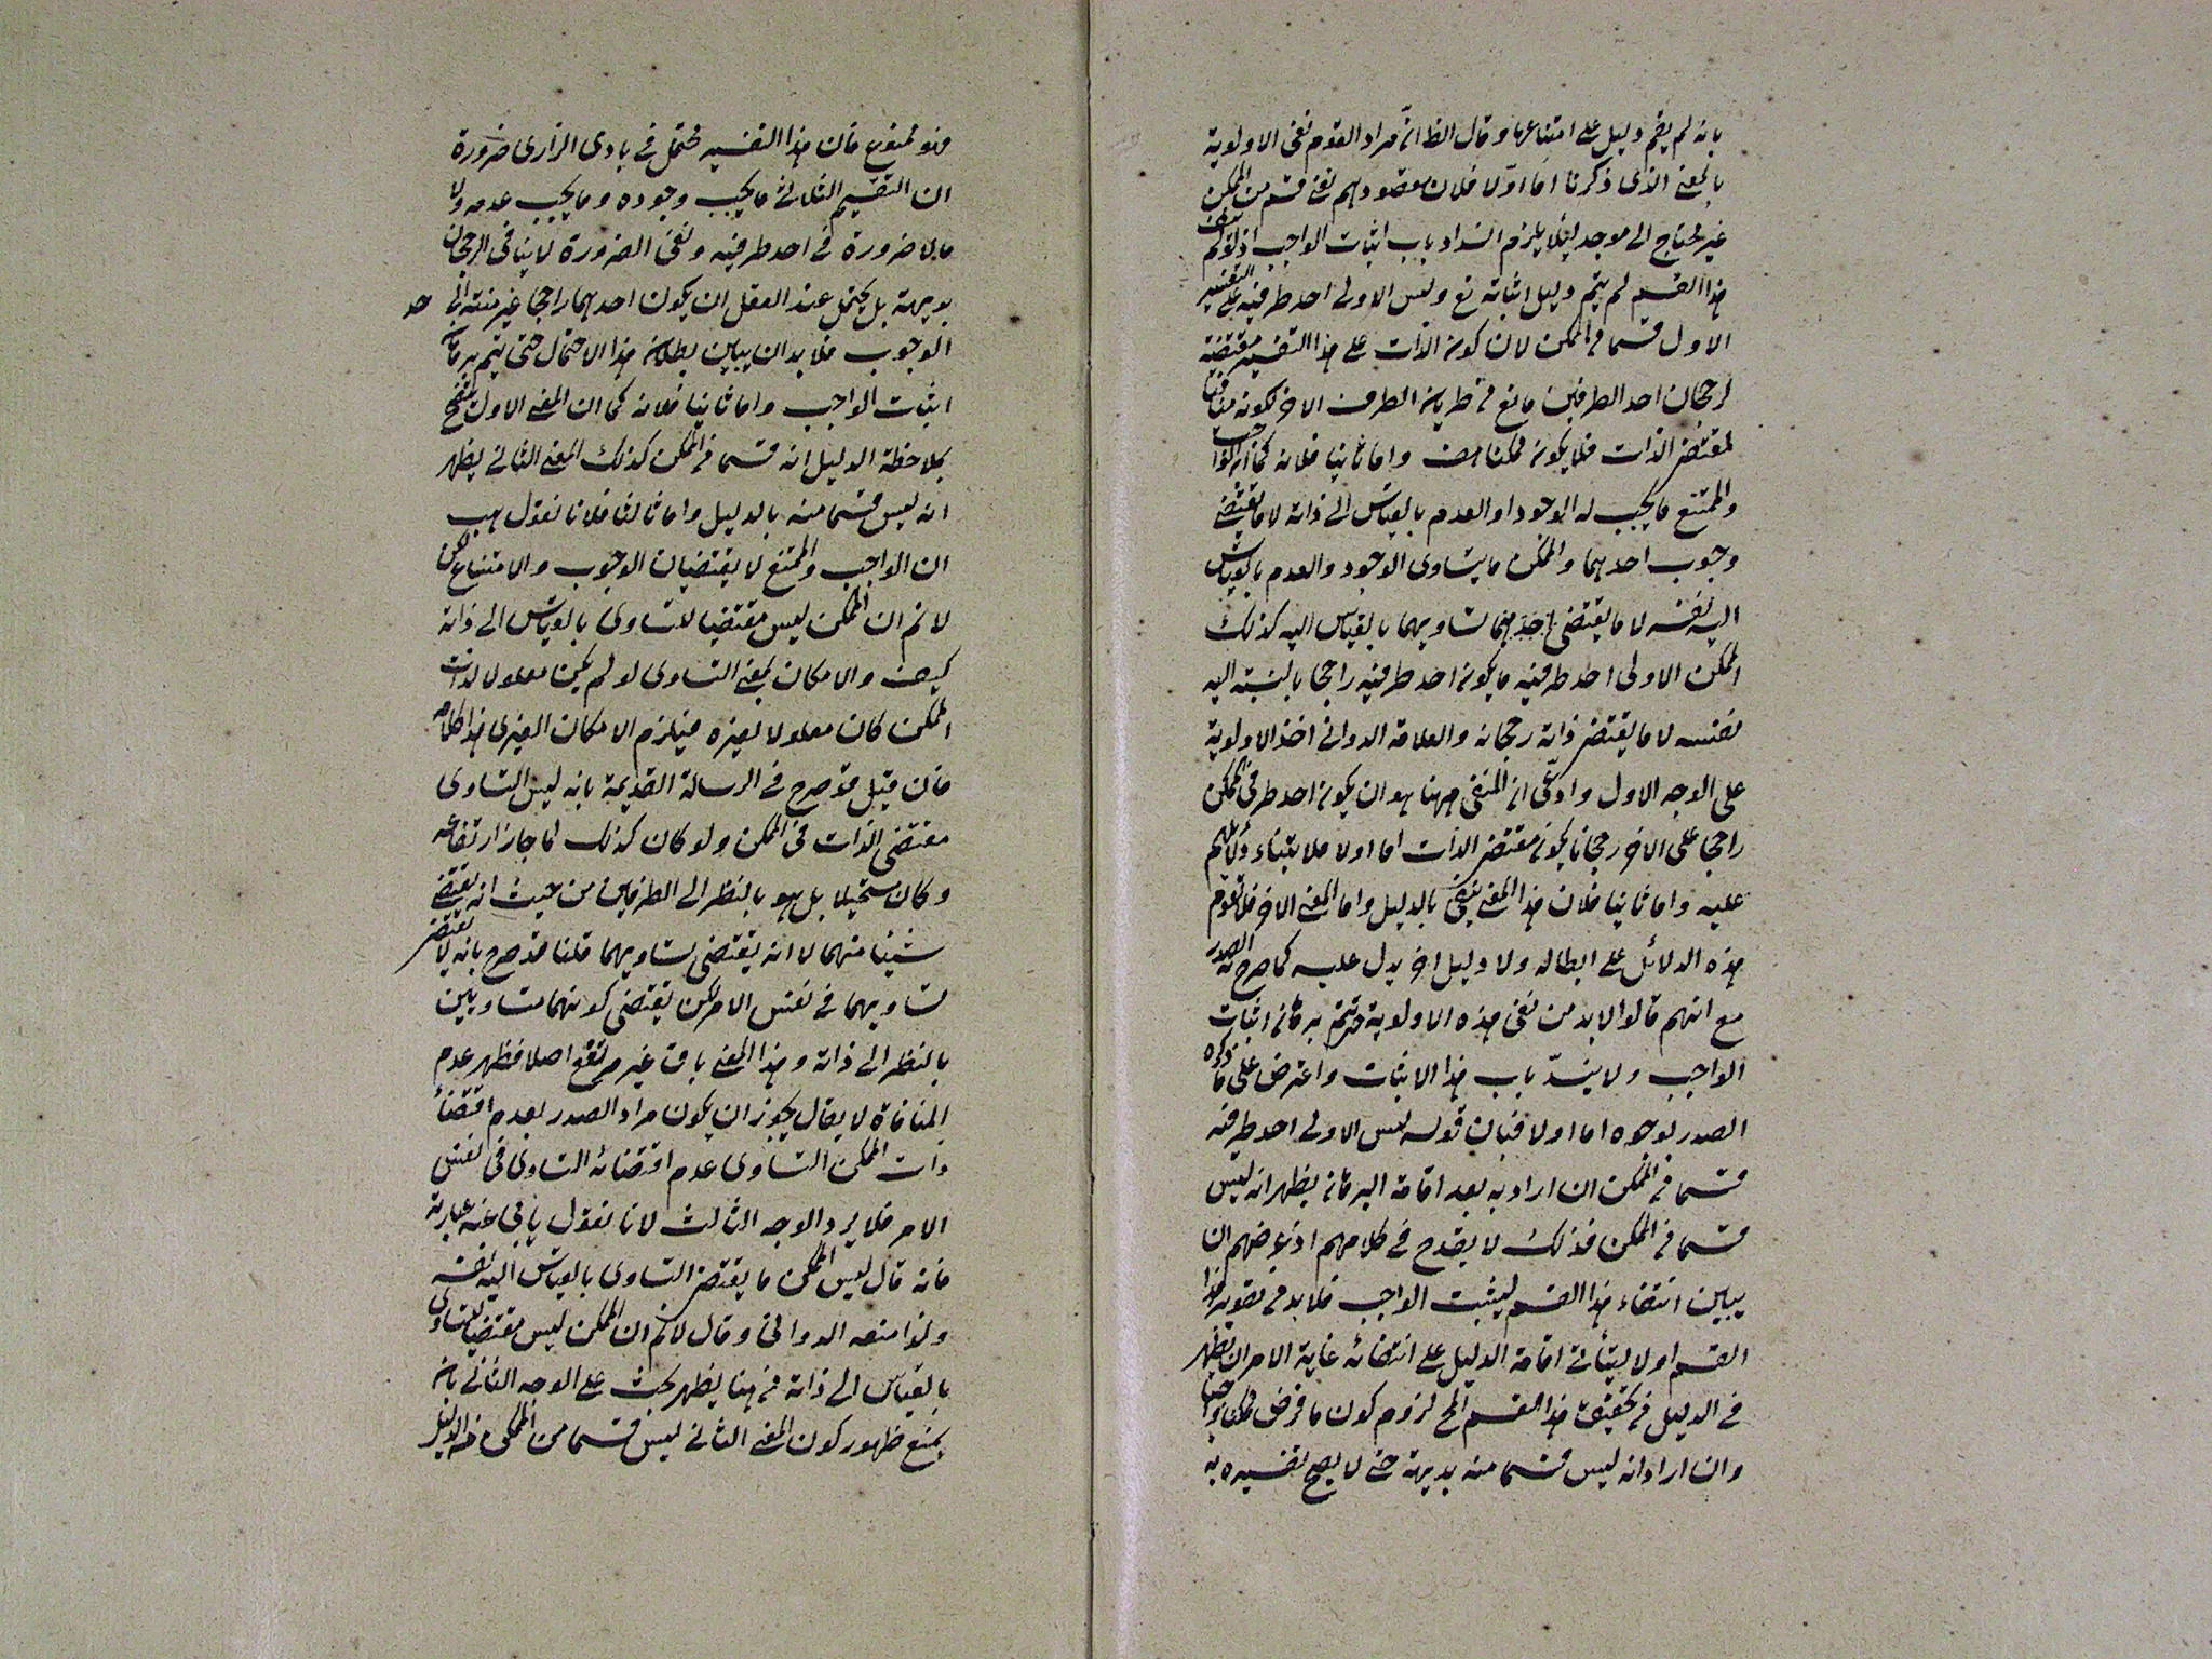 بانه لم يقم دليل على امتناعها وقال الظ انّ مراد القوم نفى الاولوية
بالمعنى الذى ذكرنا اما اوّلا فلان مقصودهم نفى قسم من الممكن
غير محتاج الى موجد لئلا يلزم انسداد باب اثبات الواجب اذ لو لم ينتف
هذا القسم لم يتم دليل اثباته تع وليس الاولى احد طرفيه على التفسير
الاول قسما من الممكن لان كون الذات على هذا التفسير مقتضية
لرجحان احد الطرفين مانع من طريان الطرف الاخر لكونه منافيا
لمقتضى الذات فلا يكون ممكنا هف واما ثانيا فلانه كما ان الواجب
والممتنع ما يجب له الوجود او العدم بالقياس الى ذاته لا ما يقتضى
وجوب احدهما والممكن ما يتساوى الوجود والعدم بالقياس
اليه نفسه لا ما يقتضى تساويهما بالقياس اليه كذلك
الممكن الاولى احد طرفيه ما يكون احد طرفيه راجحا بالنسبة اليه
نفسه لا ما يقتضى ذاته رجحانه والعلامة الدوانى اخذ الاولوية
على الوجه الاول وادعى ان المنفى ههنا هو ان يكون احد طرفى الممكن
راجحا على الاخر رجحانا يكون مقتضى الذات اما اولا فلابتناء دلائلهم
عليه واما ثانيا فلان هذا المعنى ينتفى بالدليل واما المعنى الاخر فلا تقوم
هذه الدلائل على ابطاله ولا دليل اخر يدل عليه كما صرح به الصدر
مع انهم قالوا لا بد من نفى هذه الاولوية حتى يتم برهان اثبات
الواجب ولا ينسدّ باب هذا الاثبات واعترض على ما ذكره
الصدر بوجوه اما اولا فبان قوله ليس الاولى احد طرفيه
قسما من الممكن ان اراد به بعد اقامة البرهان يظهر انه ليس
قسما من الممكن فذلك لا يقدح فى كلامهم اذ غرضهم ان
يبين انتفاء هذا القسم ليثبت الواجب فلا بد من تصوير هذا
القسم اولا ليتأتى اقامة الدليل على انتفائه غاية الامر ان يظهر
فى الدليل من تحقيق هذا القسم المح لزوم كون ما فرض ممكنا واجبا
وان اراد انه ليس قسما منه بديهة حتى لا يصح تفسيره به
فهو ممنوع فان هذا التفسير محتمل فى بادى الراى ضرورة
ان التقسيم الثلاثى ما يجب وجوده وما يجب عدمه ولا
ما لا ضرورة فى احد طرفيه ونفى الضرورة لا ينافى الرجحان
بديهة بل يحتمل عند العقل ان يكون احدهما راجحا غير منته الى حد
الوجوب فلا بد ان يبين بطلان هذا الاحتمال حتى يتم برهان
اثبات الواجب واما ثانيا فلانه كما ان المعنى الاول يتضح
بملاحظة الدليل انه قسما من الممكن كذلك المعنى الثانى يظهر
انه ليس قسما منه بالدليل واما ثالثا فلانا نقول هب
ان الواجب والممتنع لا يقتضيان الوجوب والامتناع لكن
لا نم ان الممكن ليس مقتضيا للتساوى بالقياس الى ذاته
كيف والامكان بمعنى التساوى لو لم يكن معلولا لذات
الممكن كان معلولا لغيره فيلزم الامكان الغيرى هذا كلامه
فان قيل قد صرح فى الرسالة القديمة بانه ليس التساوى
مقتضى الذات فى الممكن ولو كان كذلك لما جاز ارتفاعه
وكان مستحيلا بل هو بالنظر الى الطرفين من حيث انه يقتضى
شيئا منهما لا انه يقتضى تساويهما قلنا قد صرح بانه لا يقتضى
تساويهما فى نفس الامر لكن يقتضى كونهما متساويين
بالنظر الى ذاته وهذا المعنى باق غير مرتفع اصلا فظهر عدم
المنافاة لا يقال يجوز ان يكون مراد الصدر بعدم اقتضاء
ذات الممكن التساوى عدم اقتضائه التساوى فى نفس
الامر فلا يرد الوجه الثالث لانا نقول يابى عنه عبارته
فانه قال ليس الممكن ما يقتضى التساوى بالقياس اليه نفسه
ولذا منعه الدوانى وقال لا نم ان الممكن ليس مقتضيا للتساوى
بالقياس الى ذاته من هنا يظهر بحث على الوجه الثانى بانه
يمنع ظهور كون المعنى الثانى ليس قسما من الممكن من الدليل